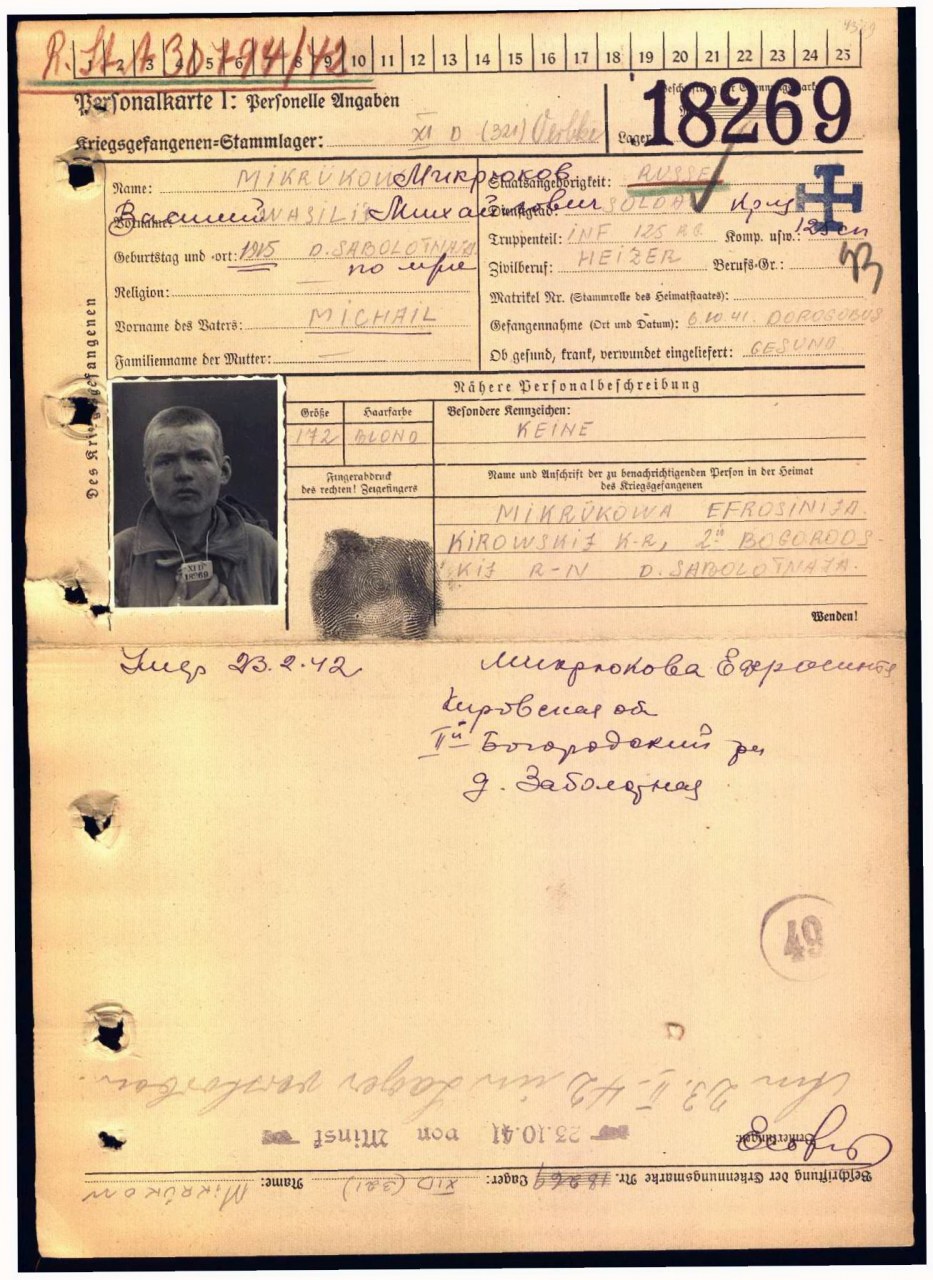 R. St. A 30794/42
1 2 3 4 5 6 7 8 9 10 11 12 13 14 15 16 17 18 19 20 21 22 23 24 25
Personalkarte I: Personelle Angaben
Kriegsgefangenen=Stammlager: XI D (321) Oerbke
Lager 18269
Des Kriegsgefangenen
Name: MIKRÜKOW Микрюков
Vorname: WASILIJ Василий Михайлович
Geburtstag und =ort: 1915 D. SABOLOTNAJA
Religion:
Vorname des Vaters: MICHAIL
Familienname der Mutter: —
Staatsangehörigkeit: RUSSE
Dienstgrad: SOLDAT
Truppenteil: INF 125 Komp. usw.: 125 сп
Zivilberuf: HEIZER Berufs=Gr.:
Matrikel Nr. (Stammrolle des Heimatstaates):
Gefangennahme (Ort und Datum): 6.10.41. DOROGOBUS
Ob gesund, krank, verwundet eingeliefert: GESUND
Nähere Personalbeschreibung
Größe Haarfarbe Besondere Kennzeichen:
172 BLOND KEINE
Fingerabdruck
des rechten! Zeigefingers
Name und Anschrift der zu benachrichtigenden Person in der Heimat
des Kriegsgefangenen
MIKRÜKOWA EFROSINIJA.
KIROWSKIJ K-R, 2й BOGORODS-
KIJ R-N D. SABOLOTNAJA.
XI D
18269
Wenden!
Умер 23.2.42
Микрюкова Ефросинья
Кировская об
IIй Богородский рн
д. Заболотная
49
Am 23.II.42 im Lager verstorben.
23.10.41 von Minsk
Bemerkungen:
Beschriftung der Erkennungsmarke Nr. 18269 Lager: XI D (321) Name: MIKRÜKOW